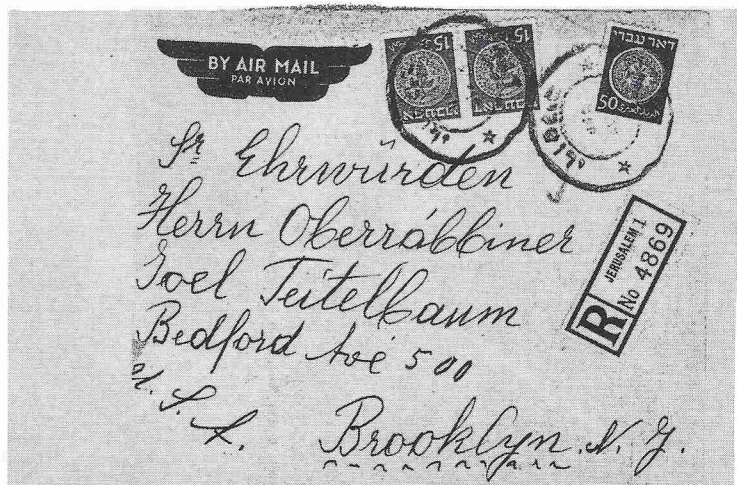 BY AIR MAIL
PAR AVION
15
15
דאר עברי
50
Sr Ehrwürden
Herrn Oberrabbiner
Joel Teitelbaum
Bedford Ave 500
U. S. A.
Brooklyn. N. Y.
R
JERUSALEM 1
No 4869